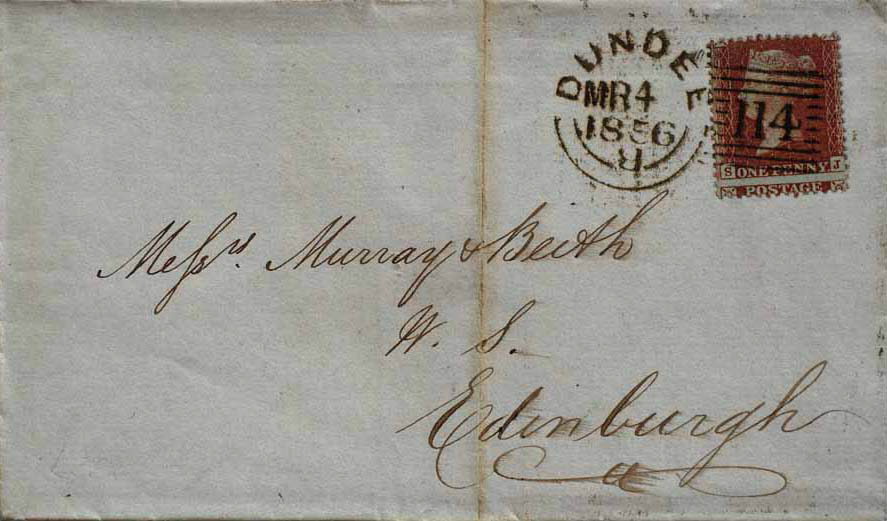 DUNDEE
MR 4
1856
R
114
S ONE PENNY J
POSTAGE
Messrs Murray & Beith
W. S.
Edinburgh